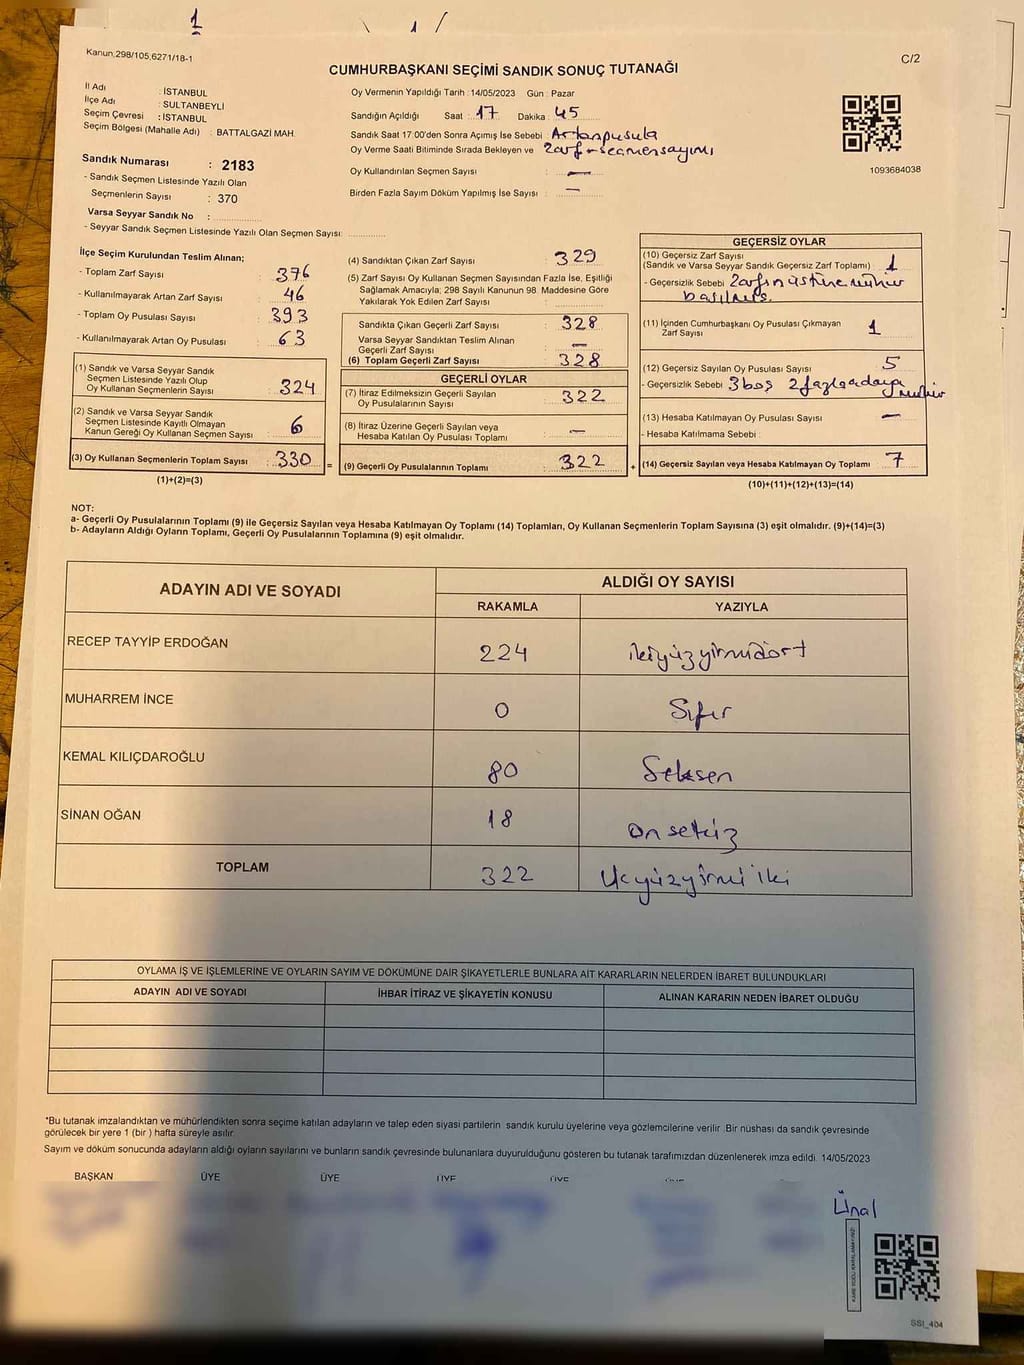 Kanun,298/105,6271/18-1
C/2
CUMHURBAŞKANI SEÇİMİ SANDIK SONUÇ TUTANAĞI
İl Adı : İSTANBUL
İlçe Adı : SULTANBEYLİ
Seçim Çevresi : İSTANBUL
Seçim Bölgesi (Mahalle Adı) : BATTALGAZİ MAH.
Sandık Numarası : 2183
- Sandık Seçmen Listesinde Yazılı Olan
Seçmenlerin Sayısı : 370
Varsa Seyyar Sandık No :
- Seyyar Sandık Seçmen Listesinde Yazılı Olan Seçmen Sayısı:
Oy Vermenin Yapıldığı Tarih :14/05/2023 Gün : Pazar
Sandığın Açıldığı Saat : 17 Dakika : 45
Sandık Saat 17:00'den Sonra Açımış İse Sebebi : Artanpusula
Oy Verme Saati Bitiminde Sırada Bekleyen ve zarf-seçmensayımı
Oy Kullandırılan Seçmen Sayısı : —
Birden Fazla Sayım Döküm Yapılmış İse Sayısı : —
1093684038
İlçe Seçim Kurulundan Teslim Alınan;
- Toplam Zarf Sayısı : 376
- Kullanılmayarak Artan Zarf Sayısı : 46
- Toplam Oy Pusulası Sayısı : 393
- Kullanılmayarak Artan Oy Pusulası : 63
(1) Sandık ve Varsa Seyyar Sandık
Seçmen Listesinde Yazılı Olup
Oy Kullanan Seçmenlerin Sayısı : 324
(2) Sandık ve Varsa Seyyar Sandık
Seçmen Listesinde Kayıtlı Olmayan
Kanun Gereği Oy Kullanan Seçmen Sayısı : 6
(3) Oy Kullanan Seçmenlerin Toplam Sayısı : 330 =
(1)+(2)=(3)
(4) Sandıktan Çıkan Zarf Sayısı : 329
(5) Zarf Sayısı Oy Kullanan Seçmen Sayısından Fazla İse, Eşitliği
Sağlamak Amacıyla; 298 Sayılı Kanunun 98. Maddesine Göre
Yakılarak Yok Edilen Zarf Sayısı :
Sandıkta Çıkan Geçerli Zarf Sayısı : 328
Varsa Seyyar Sandıktan Teslim Alınan
Geçerli Zarf Sayısı : —
(6) Toplam Geçerli Zarf Sayısı : 328
GEÇERLİ OYLAR
(7) İtiraz Edilmeksizin Geçerli Sayılan
Oy Pusulalarının Sayısı : 322
(8) İtiraz Üzerine Geçerli Sayılan veya
Hesaba Katılan Oy Pusulası Toplamı : —
(9) Geçerli Oy Pusulalarının Toplamı : 322 +
GEÇERSİZ OYLAR
(10) Geçersiz Zarf Sayısı
(Sandık ve Varsa Seyyar Sandık Geçersiz Zarf Toplamı) : 1
- Geçersizlik Sebebi : Zarfın üstüne mühür
basılmış.
(11) İçinden Cumhurbaşkanı Oy Pusulası Çıkmayan
Zarf Sayısı : 1
(12) Geçersiz Sayılan Oy Pusulası Sayısı : 5
- Geçersizlik Sebebi : 3boş 2fazlaadaya
mühür
(13) Hesaba Katılmayan Oy Pusulası Sayısı : —
- Hesaba Katılmama Sebebi :
(14) Geçersiz Sayılan veya Hesaba Katılmayan Oy Toplamı : 7
(10)+(11)+(12)+(13)=(14)
NOT:
a- Geçerli Oy Pusulalarının Toplamı (9) ile Geçersiz Sayılan veya Hesaba Katılmayan Oy Toplamı (14) Toplamları, Oy Kullanan Seçmenlerin Toplam Sayısına (3) eşit olmalıdır. (9)+(14)=(3)
b- Adayların Aldığı Oyların Toplamı, Geçerli Oy Pusulalarının Toplamına (9) eşit olmalıdır.
ADAYIN ADI VE SOYADI ALDIĞI OY SAYISI
RAKAMLA YAZIYLA
RECEP TAYYİP ERDOĞAN 224 ikiyüzyirmidört
MUHARREM İNCE 0 Sıfır
KEMAL KILIÇDAROĞLU 80 Seksen
SİNAN OĞAN 18 on sekiz
TOPLAM 322 Üçyüzyirmi iki
OYLAMA İŞ VE İŞLEMLERİNE VE OYLARIN SAYIM VE DÖKÜMÜNE DAİR ŞİKAYETLERLE BUNLARA AİT KARARLARIN NELERDEN İBARET BULUNDUKLARI
ADAYIN ADI VE SOYADI İHBAR İTİRAZ VE ŞİKAYETİN KONUSU ALINAN KARARIN NEDEN İBARET OLDUĞU
*Bu tutanak imzalandıktan ve mühürlendikten sonra seçime katılan adayların ve talep eden siyasi partilerin sandık kurulu üyelerine veya gözlemcilerine verilir. Bir nüshası da sandık çevresinde
görülecek bir yere 1 (bir ) hafta süreyle asılır.
Sayım ve döküm sonucunda adayların aldığı oyların sayılarını ve bunların sandık çevresinde bulunanlara duyurulduğunu gösteren bu tutanak tarafımızdan düzenlenerek imza edildi. 14/05/2023
BAŞKAN ÜYE ÜYE ÜYE ÜYE ÜYE
Ünal
SSI_404